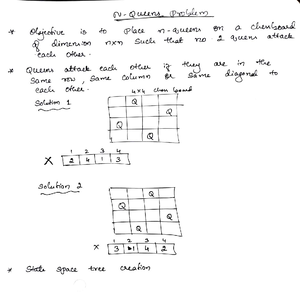 N-Queens Problem
* Objective is to Place n-queens on a chessboard
of dimension n×n such that no 2 queens attack
each other.
* Queens attack each other if they are in the
same row, same column or same diagonal to
each other.
4×4 chess board
Solution 1
Q
Q
Q
Q
1 2 3 4
X 2 4 1 3
Solution 2
Q
Q
Q
Q
1 2 3 4
X 3 1 4 2
* State space tree creation